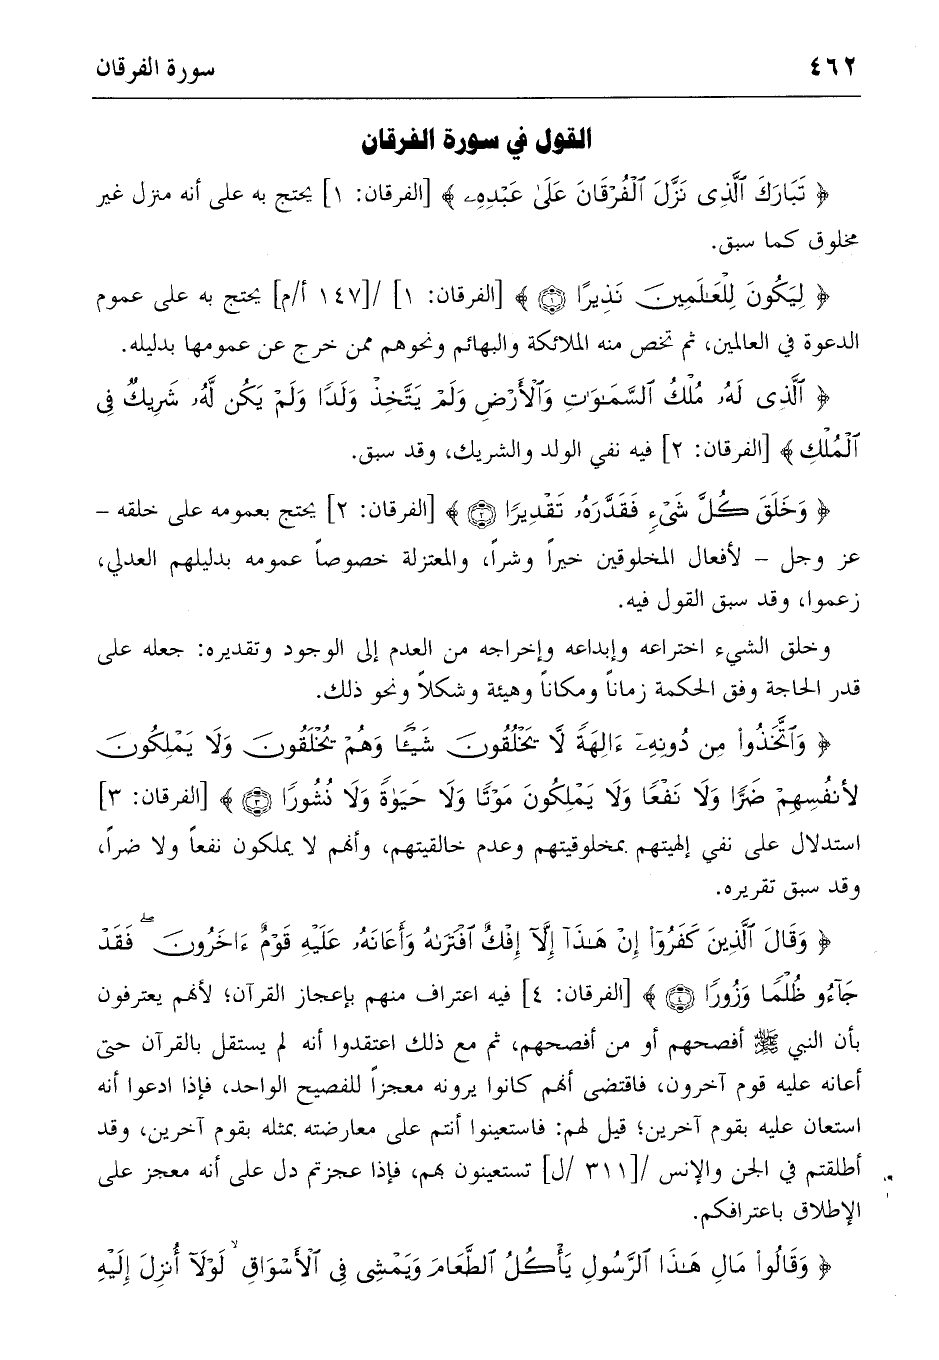 ٤٦٢ سورة الفرقان
القول في سورة الفرقان
﴿ تَبَارَكَ ٱلَّذِى نَزَّلَ ٱلْفُرْقَانَ عَلَىٰ عَبْدِهِۦ ﴾ [الفرقان: ١] يحتج به على أنه منزل غير
مخلوق كما سبق.
﴿ لِيَكُونَ لِلْعَـٰلَمِينَ نَذِيرًا ۝١ ﴾ [الفرقان: ١] /[١٤٧ أ/م] يحتج به على عموم
الدعوة في العالمين، ثم تخص منه الملائكة والبهائم ونحوهم ممن خرج عن عمومها بدليله.
﴿ ٱلَّذِى لَهُۥ مُلْكُ ٱلسَّمَـٰوَٰتِ وَٱلْأَرْضِ وَلَمْ يَتَّخِذْ وَلَدًا وَلَمْ يَكُن لَّهُۥ شَرِيكٌ فِى
ٱلْمُلْكِ ﴾ [الفرقان: ٢] فيه نفي الولد والشريك، وقد سبق.
﴿ وَخَلَقَ كُلَّ شَىْءٍ فَقَدَّرَهُۥ تَقْدِيرًا ۝٢ ﴾ [الفرقان: ٢] يحتج بعمومه على خلقه –
عز وجل – لأفعال المخلوقين خيراً وشراً، والمعتزلة خصوصاً عمومه بدليلهم العدلي،
زعموا، وقد سبق القول فيه.
وخلق الشيء اختراعه وإبداعه وإخراجه من العدم إلى الوجود وتقديره: جعله على
قدر الحاجة وفق الحكمة زماناً ومكاناً وهيئة وشكلاً ونحو ذلك.
﴿ وَٱتَّخَذُوا۟ مِن دُونِهِۦٓ ءَالِهَةً لَّا يَخْلُقُونَ شَيْـًٔا وَهُمْ يُخْلَقُونَ وَلَا يَمْلِكُونَ
لِأَنفُسِهِمْ ضَرًّا وَلَا نَفْعًا وَلَا يَمْلِكُونَ مَوْتًا وَلَا حَيَوٰةً وَلَا نُشُورًا ۝٣ ﴾ [الفرقان: ٣]
استدلال على نفي إلهيتهم بمخلوقيتهم وعدم خالقيتهم، وأنهم لا يملكون نفعاً ولا ضراً،
وقد سبق تقريره.
﴿ وَقَالَ ٱلَّذِينَ كَفَرُوٓا۟ إِنْ هَـٰذَآ إِلَّآ إِفْكٌ ٱفْتَرَىٰهُ وَأَعَانَهُۥ عَلَيْهِ قَوْمٌ ءَاخَرُونَ ۖ فَقَدْ
جَآءُو ظُلْمًا وَزُورًا ۝٤ ﴾ [الفرقان: ٤] فيه اعتراف منهم بإعجاز القرآن؛ لأنهم يعترفون
بأن النبي ﷺ أفصحهم أو من أفصحهم، ثم مع ذلك اعتقدوا أنه لم يستقل بالقرآن حتى
أعانه عليه قوم آخرون، فاقتضى أنهم كانوا يرونه معجزاً للفصيح الواحد، فإذا ادعوا أنه
استعان عليه بقوم آخرين؛ قيل لهم: فاستعينوا أنتم على معارضته بمثله بقوم آخرين، وقد
أطلقتم في الجن والإنس /[٣١١ /ل] تستعينون بهم، فإذا عجزتم دل على أنه معجز على
الإطلاق باعترافكم.
﴿ وَقَالُوا۟ مَالِ هَـٰذَا ٱلرَّسُولِ يَأْكُلُ ٱلطَّعَامَ وَيَمْشِى فِى ٱلْأَسْوَاقِ ۙ لَوْلَآ أُنزِلَ إِلَيْهِ